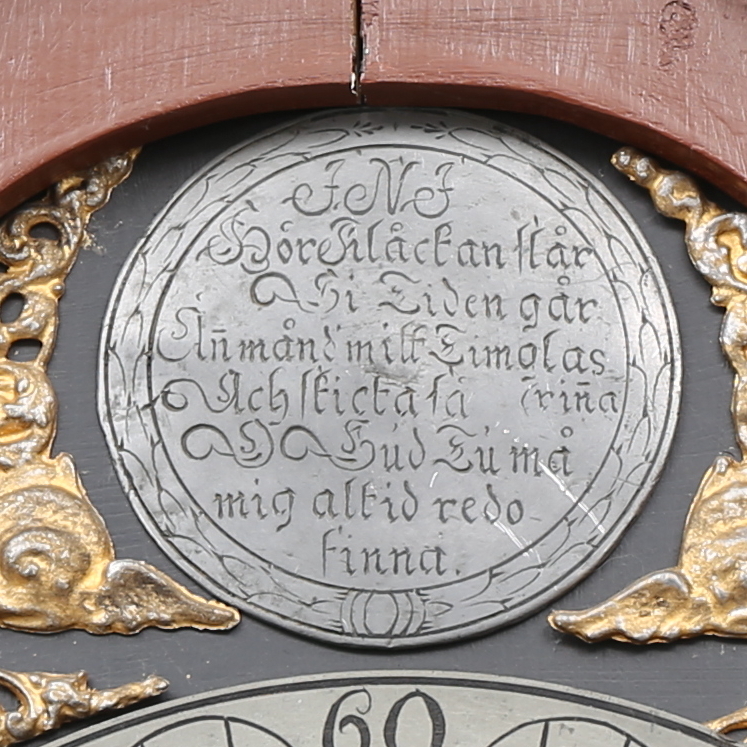 J. N. J
Hör Klåckan slår
Hi Tiden går
Än månd mitt Timglas
Ach skicka så rina
O Gud Tu må
mig altid redo
finna.
60